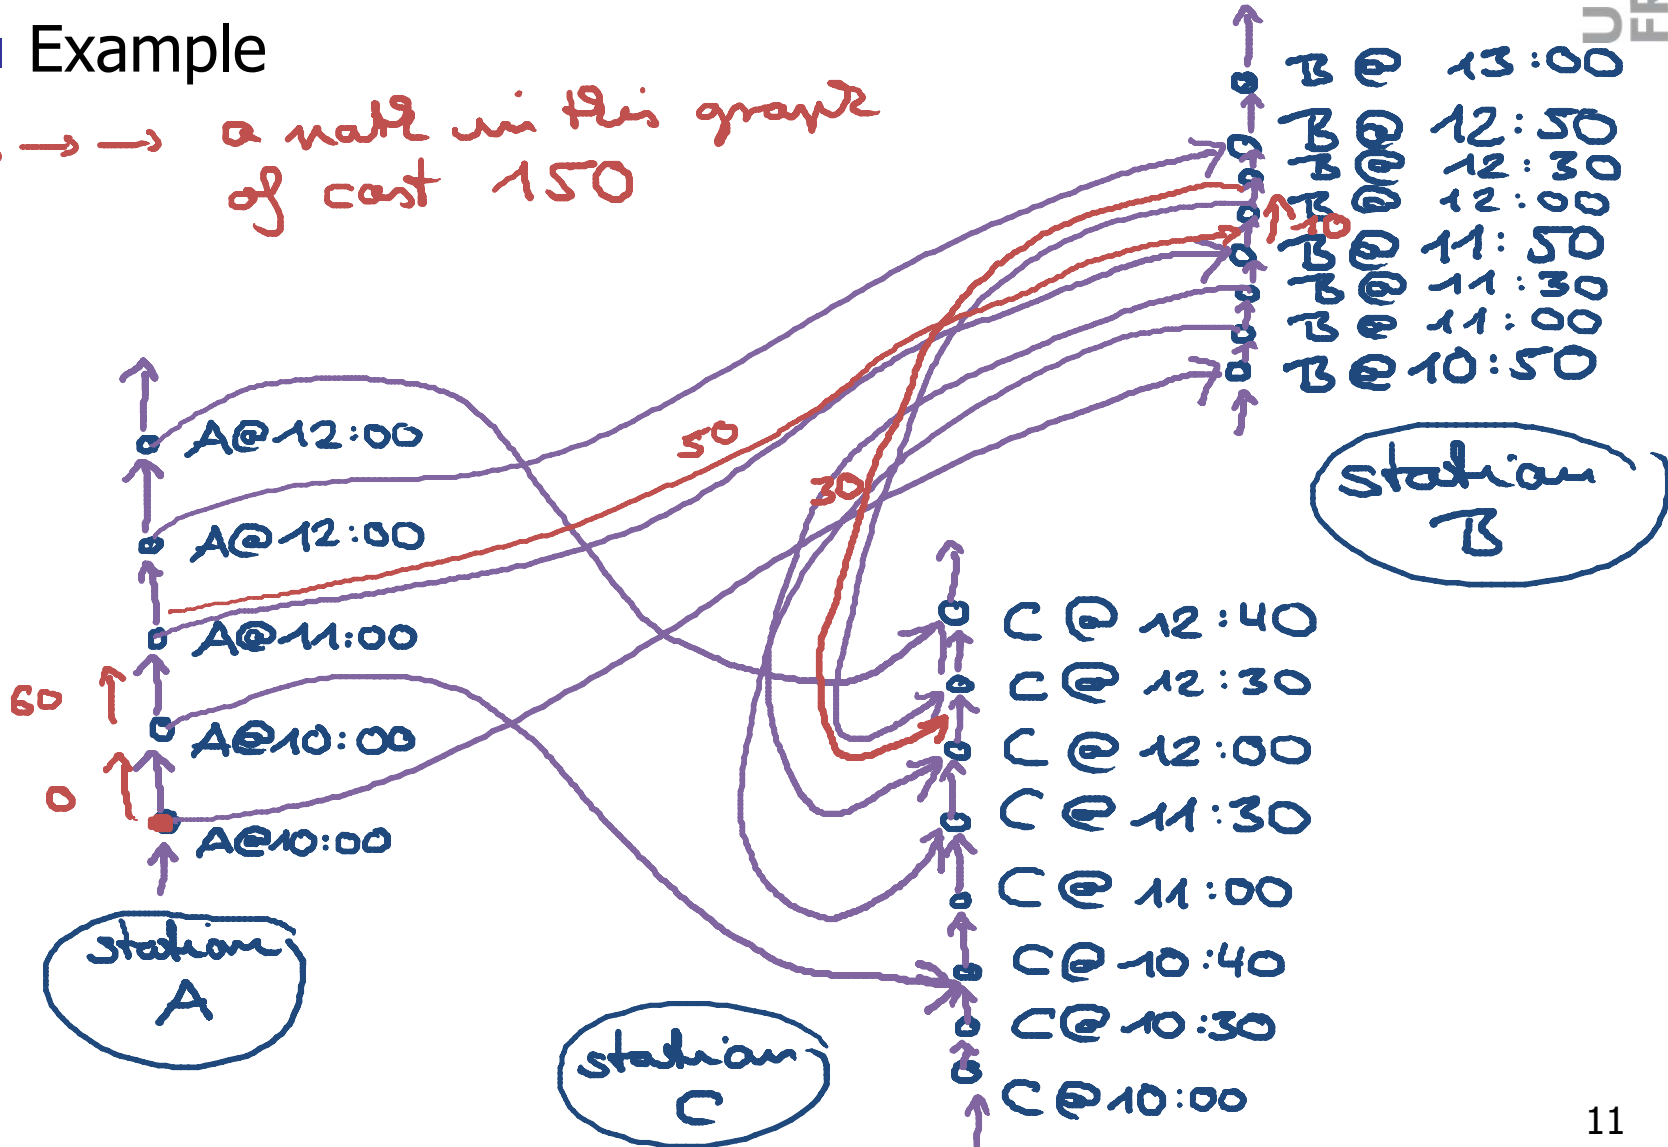 Example
a path in this graph
of cost 150
B @ 13:00
B @ 12:50
B @ 12:30
B @ 12:00
10
B @ 11:50
B @ 11:30
B @ 11:00
B @ 10:50
station
B
50
30
A@12:00
A@12:00
A@11:00
60
A@10:00
0
A@10:00
station
A
C @ 12:40
C @ 12:30
C @ 12:00
C @ 11:30
C @ 11:00
C @ 10:40
C @ 10:30
C @ 10:00
station
C
11